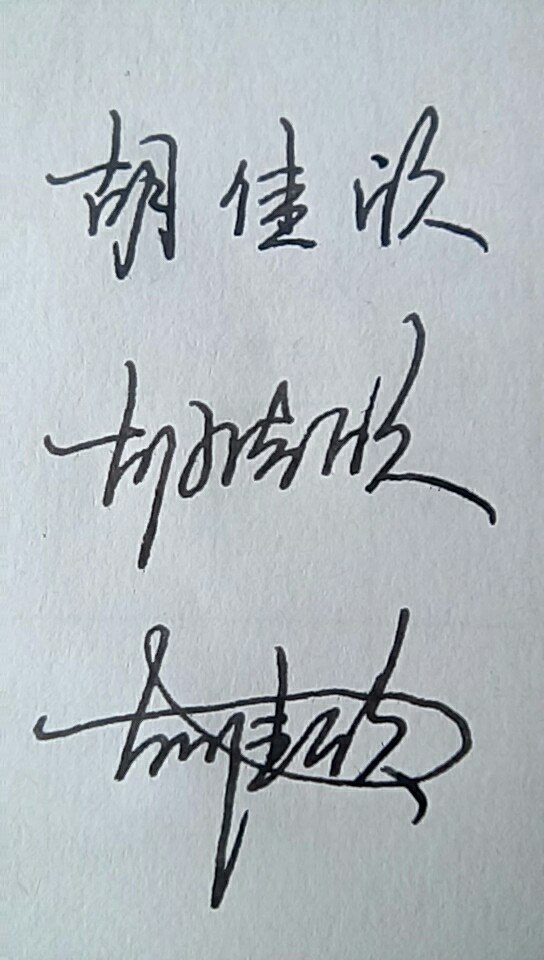 胡佳欣
胡佳欣
胡佳欣